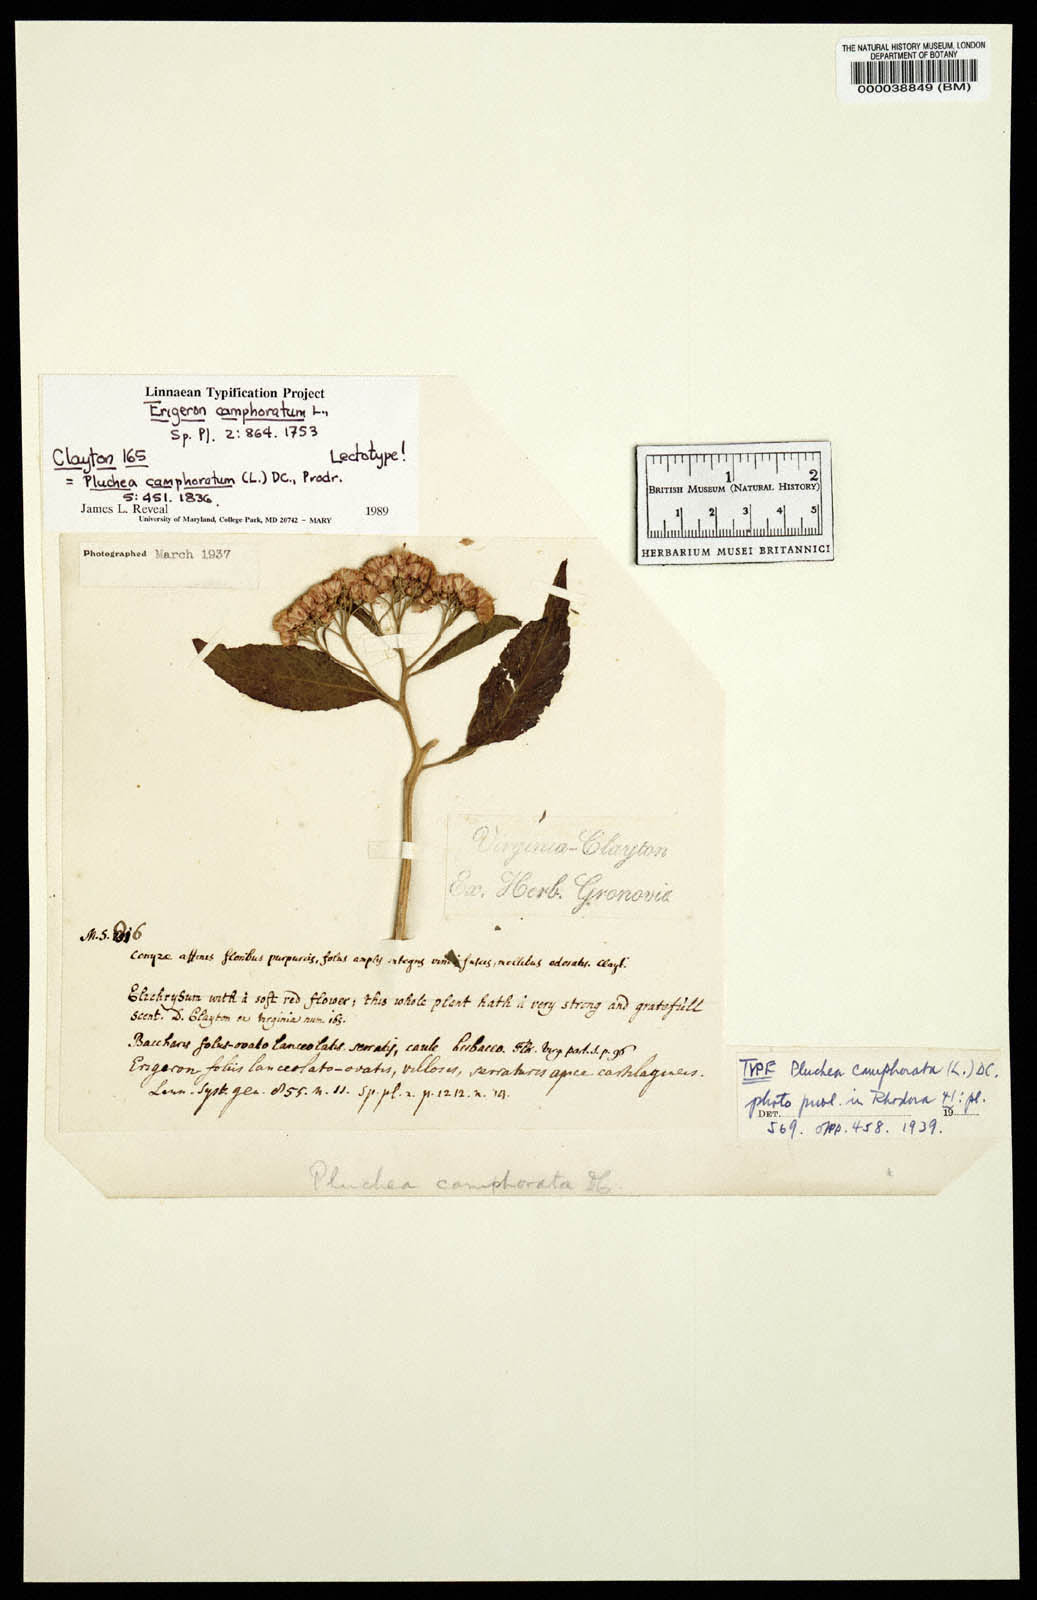 THE NATURAL HISTORY MUSEUM, LONDON
DEPARTMENT OF BOTANY
000038849 (BM)
Linnaean Typification Project
Erigeron camphoratum L.,
Sp. Pl. 2: 864. 1753
Clayton 165 Lectotype!
= Pluchea camphoratum (L.) DC., Prodr.
5: 451. 1836.
James L. Reveal 1989
University of Maryland, College Park, MD 20742 – MARY
Photographed March 1937
1 2
BRITISH MUSEUM (NATURAL HISTORY)
1 2 3 4 5
HERBARIUM MUSEI BRITANNICI
Virginia-Clayton
Ex. Herb. Gronovie
M.S.
Conyzæ affinis floribus purpureis, foliis amplis integris mellitus odoratis. Clayt.
Elichrysum with a soft red flower; this whole plant hath a very strong and gratefull
scent. D. Clayton ex Virginia num. 165.
Baccharis foliis-ovato lanceolatis serratis, caule herbaceo. Flor. Virg. part. 1. p. 96
Erigeron foliis lanceolato-ovatis, villosis, serraturis apice cartilagineis.
Linn. Syst. gen. 855. n. 11. Sp. pl. 2. p. 1212. n. 19.
TYPE Pluchea camphorata (L.) DC.
photo publ. in Rhodora 41: pl.
DET. 19
569. opp. 458. 1939.
Pluchea camphorata DC.